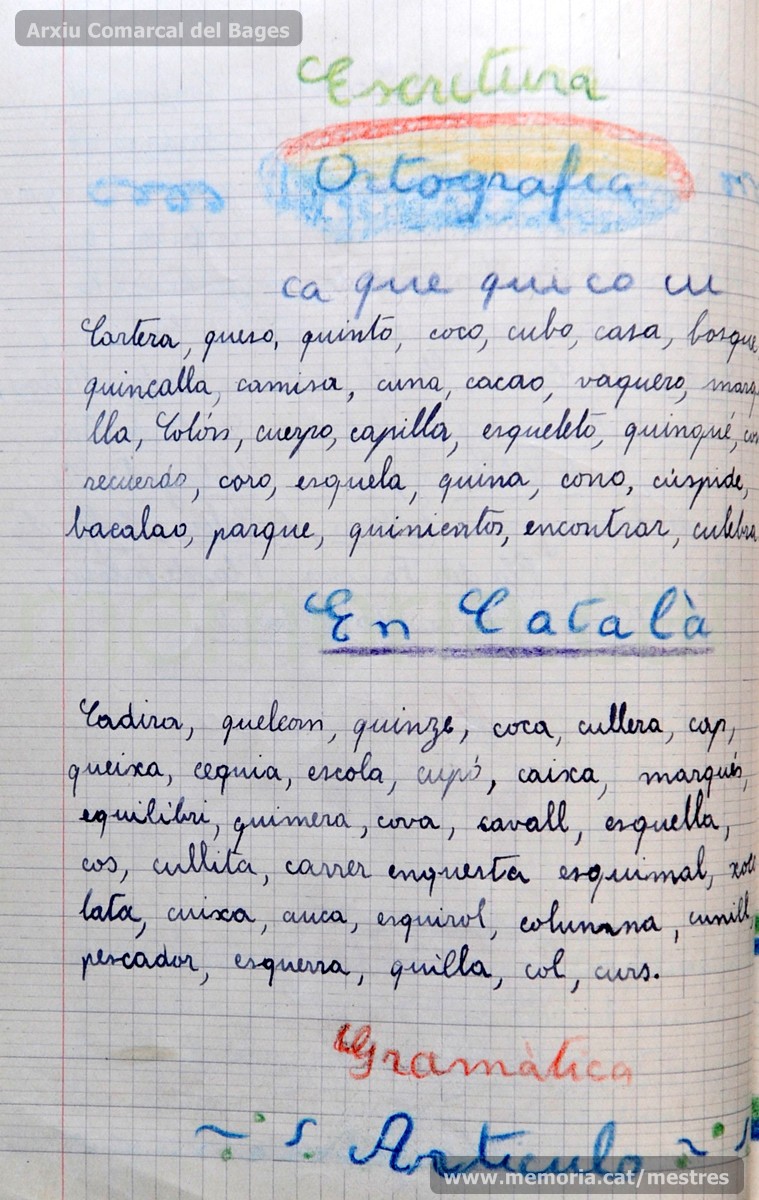 Arxiu Comarcal del Bages
Escritura
Ortografía
ca que qui co cu
Cartera, queso, quinto, coco, cubo, casa, bosque
quincalla, camisa, cuna, cacao, vaquero, marq
lla, Colón, cuerpo, capilla, esqueleto, quinqué,
recuerdo, coro, esquela, quina, cono, cúspide,
bacalao, parque, quinientos, encontrar, culebra
En Català
Cadira, quelcom, quinze, coca, cullera, cap,
queixa, cequia, escola, cupó, caixa, marqués,
equilibri, quimera, cova, cavall, esquella,
cos, cullita, carrer enquesta esquimal, xoco
lata, cuixa, cuca, esquirol, columna, cunill,
pescador, esquerra, quilla, col, curs.
Gramàtica
Artículo
www.memoria.cat/mestres